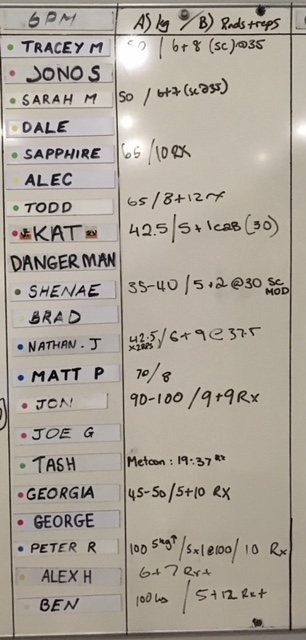 6PM A) kg / B) Rnds+reps
TRACEY M 50 / 6+8 (sc)@35
JONO S
SARAH M 50 / 6+7 (sc@35)
DALE
SAPPHIRE 65 / 10 RX
ALEC
TODD 65/8+12 rx
KAT 42.5/5+1cab (30)
DANGERMAN
SHENAE 35-40 / 5+2 @30 SC MOD
BRAD
NATHAN. J 42.5 / 6+9 @ 37.5
MATT P 70/8
JON 90-100 / 9+9 Rx
JOE G
TASH Metcon: 19:37 Rx
GEORGIA 45-50/5+10 RX
GEORGE
PETER R 100 5kg↑ / 5x1@100 / 10 Rx
ALEX H 6+7 Rx+
BEN 100 / 5+12 Rx+